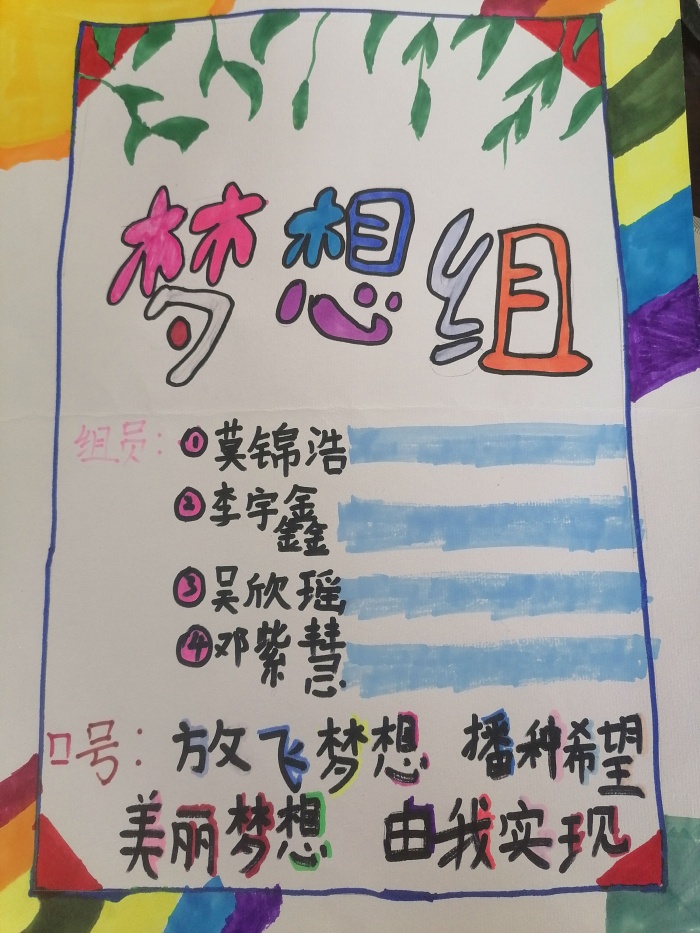 梦想组
组员：①莫锦浩
②李宇鑫
③吴欣瑶
④邓紫慧
口号：放飞梦想 播种希望
美丽梦想 由我实现